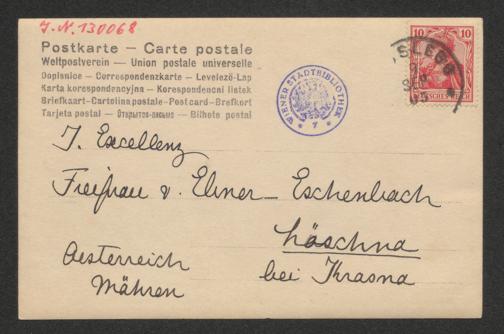 J.N. 130068
Postkarte – Carte postale
Weltpostverein – Union postale universelle
Dopisnice – Correspondenzkarte – Levelező-Lap
Karta korespondencyjna – Korespondenčni listek
Briefkaart – Cartolina postale – Post card – Brefkort
Tarjeta postal – Открытое письмо – Bilhete postal
WIENER STADTBIBLIOTHEK
* 7 *
10 10
DEUTSCHES REICH
J. Excellenz
Freifrau v. Ebner – Eschenbach
Löschna
bei Krasna
Oesterreich
Mähren